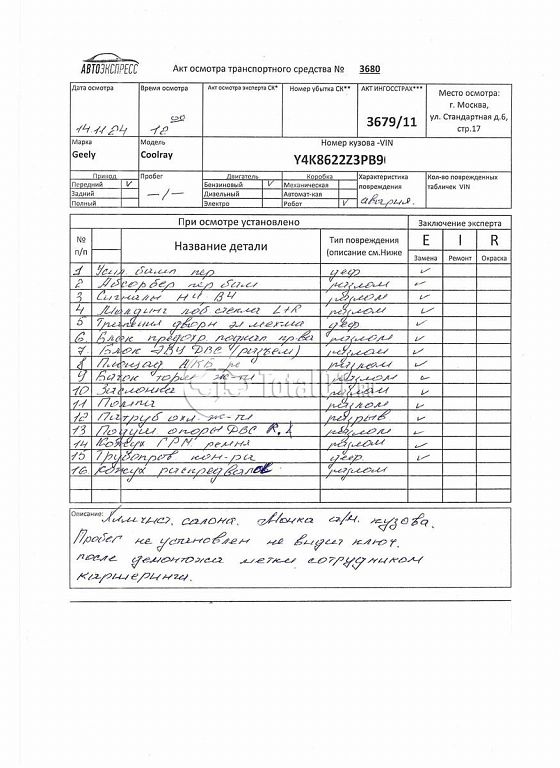 АВТОЭКСПРЕСС
Акт осмотра транспортного средства № 3680
Дата осмотра
Время осмотра
Акт осмотра эксперта СК*
Номер убытка СК**
АКТ ИНГОССТРАХ***
Место осмотра:
г. Москва,
ул. Стандартная д.6,
стр.17
14.11.24
12 00
3679/11
Марка
Модель
Номер кузова -VIN
Geely
Coolray
Y4K8622Z3PB9
Привод
Пробег
Двигатель
Коробка
Характеристика повреждения
Кол-во поврежденных табличек VIN
Передний V
-/-
Бензиновый V
Механическая
Задний
Дизельный
Автомат-кая
Полный
Электро
Робот V
авария.
При осмотре установлено
Заключение эксперта
№ п/п
Название детали
Тип повреждения (описание см.Ниже
E
I
R
Замена
Ремонт
Окраска
1 Усил бамп пер деф ✓
2 Абсорбер пер бам разлом ✓
3 Сигналы НЧ ВЧ разлом ✓
4 Молдинг лоб стекла L+R разлом ✓
5 Трапеция дворн эл мехма деф ✓
6 Блок предохр поднап разлом ✓
7 Блок ЭБУ ДВС (разъем) разлом ✓
8 Площад АКБ разлом ✓
9 Бачок торм ж-ти разлом ✓
10 Заслонка разлом ✓
11 Помпа разлом ✓
12 Патруб охл. ж-ти разрыв ✓
13 Подушк опоры ДВС разлом ✓
14 Кожух ГРМ ремня разлом ✓
15 Трубопров кон-ра деф ✓
16 Кожух распредвалов разлом
Total
Описание: Химчист. салона. Мойка а/м. кузова.
Пробег не установлен не видит ключ.
после демонтажа метки сотрудником
каршеринга.